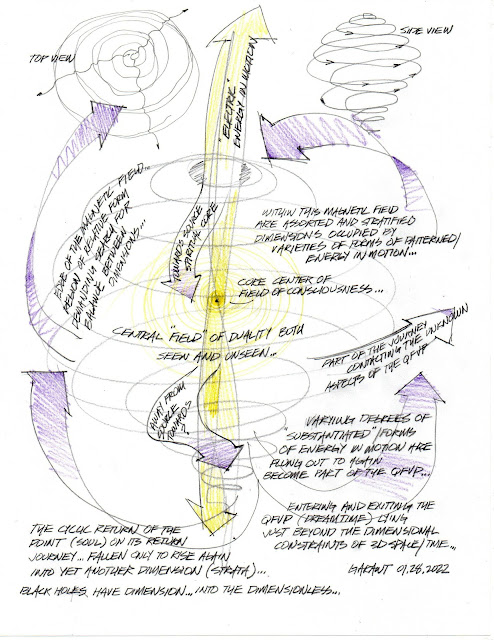 TOP VIEW
SIDE VIEW
"ELECTRIC"
ENERGY IN MOTION
EDGE OF THE MAGNETIC FIELD...
REGION OF RELATIVE FORM
DEMANDING SEARCH FOR
BALANCE BETWEEN
DIMENSIONS...
TOWARDS SOURCE
SPIRITUAL CORE
WITHIN THIS MAGNETIC FIELD
ARE ASSORTED AND STRATIFIED
DIMENSIONS OCCUPIED BY
VARIETIES OF FORMS OF PATTERNED/
ENERGY IN MOTION...
CORE CENTER OF
FIELD OF CONSCIOUSNESS...
CENTRAL "FIELD" OF DUALITY BOTH
SEEN AND UNSEEN...
PART OF THE JOURNEY
CONTACTING THE UNKNOWN
ASPECTS OF THE QFVP
AWAY FROM
SOURCE
TOWARDS
?
VARYING DEGREES OF
"SUBSTANTIATED"/FORMS
OF ENERGY IN MOTION ARE
FLUNG OUT TO AGAIN
BECOME PART OF THE QFVP...
ENTERING AND EXITING THE
QFVP (DREAMTIME) LYING
JUST BEYOND THE DIMENSIONAL
CONSTRAINTS OF 3D SPACE/TIME...
THE CYCLIC RETURN OF THE
POINT (SOUL) ON ITS RETURN
JOURNEY... FALLEN ONLY TO RISE AGAIN
INTO YET ANOTHER DIMENSION (STRATA)...
GARANT 01.28.2022
BLACK HOLES HAVE DIMENSION... INTO THE DIMENSIONLESS...